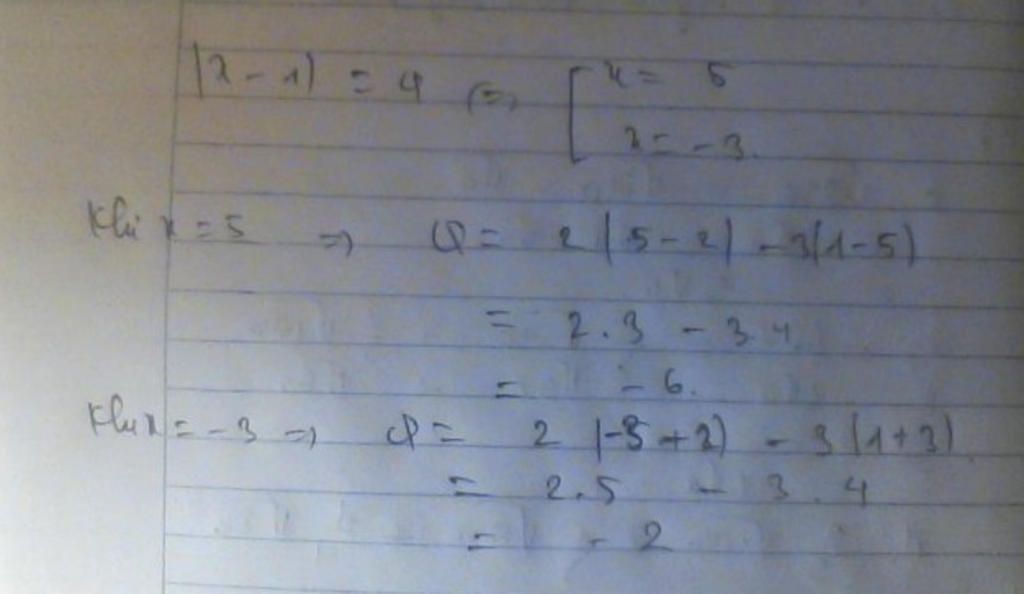 |x - 1| = 4 <=> [ x = 5
x = -3.
Khi x = 5 => Q = 2|5-2| - 3|1-5|
= 2.3 - 3.4
= -6.
Khi x = -3 => Q = 2 |-3+2| - 3|1+3|
= 2.5 - 3.4
= -2